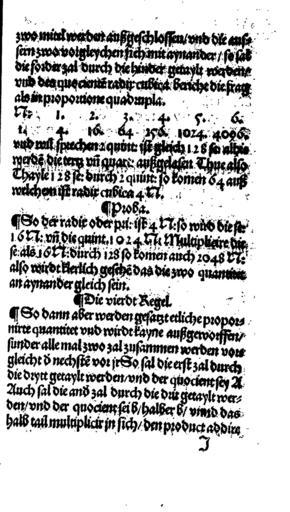 zwo mittel werden außgeschlossen/vnd die auſ-
sern zwo vergleychen sich mit aynander/ so sal
die forder zal durch die hinder getaylt werden
vnd des quocient radix cubica bericht die frag
als in proportione quadrupla.
1. 2. 3. 4. 5. 6.
1. 4. 16. 64 256. 1024. 4096.
vnd wil sprechen 2 quint: ist gleich 128 se also
werdē die terz vñ quart: außgelasen Thue also
Thayle 128 se: durch 2 quint: so komen 64 auß
welchem ist radix cubica 4
¶Proba.
¶So der radix oder pri: ist 4 so wird die se:
16 vñ die quint. 1024 Multiplicire die
se: als 16 durch 128 so komen auch 2048
also wirdt klerlich gesehē das die zwo quantitet
an aynander gleich sein.
¶Die vierdt Regel.
¶So dann aber werden gesatzt etliche propor-
nirte quantitet vnd wirdt kayne außgeworffen/
sunder alle mal zwo zal zusammen werden vor-
gleicht d nechstē vor jr So sal die erst zal durch
die drytt getaylt werden/vnd der quocient sey A
Auch sal die and zal durch die drit getaylt wer-
den/vnd der quocient sei b/halber b/ vnnd das
halb tail multiplicir in sich/den product addire
J